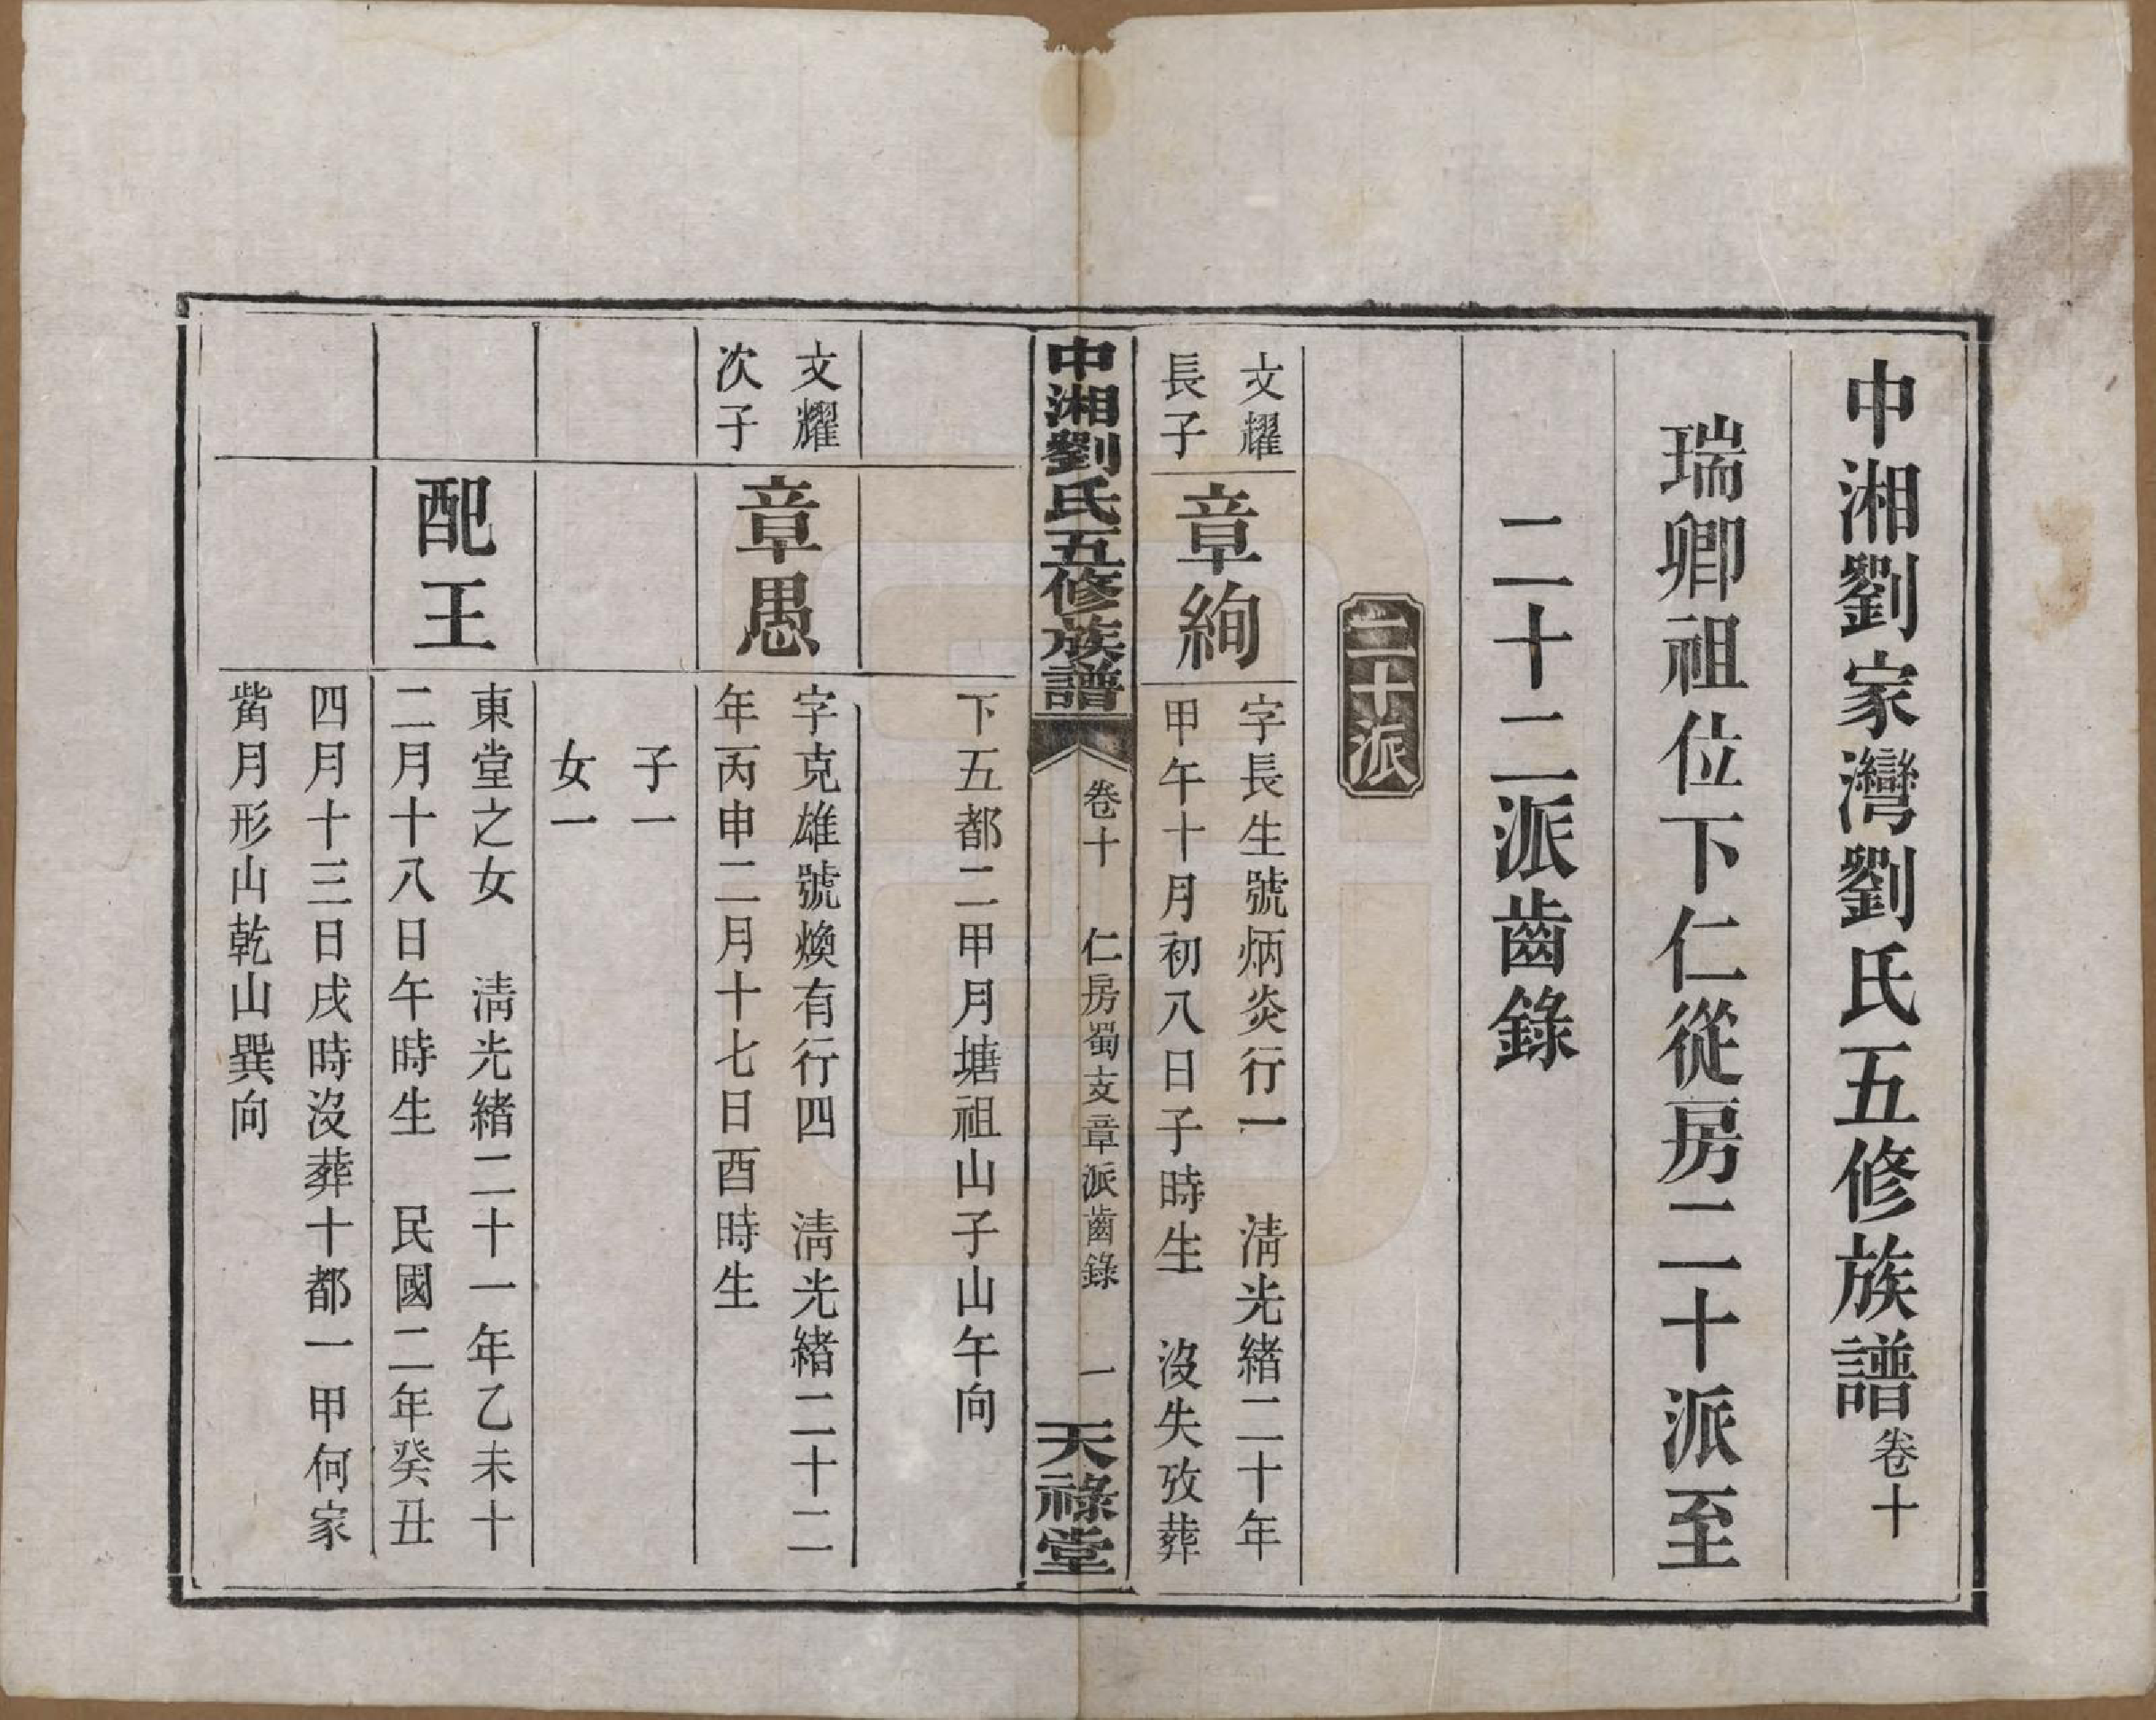 中湘劉家灣劉氏五修族譜卷十
瑞卿祖位下仁從房二十派至
二十二派齒錄
二十派
文耀
長子
章絢
字長生號炳炎行一　清光緒二十年
甲午十月初八日子時生　沒失攷葬
中湘劉氏五修族譜
卷十　仁房蜀支章派齒錄　一
天祿堂
下五都二甲月塘祖山子山午向
文耀
次子
章愚
字克雄號煥有行四　清光緒二十二
年丙申二月十七日酉時生
子一
女一
配王
東堂之女　清光緒二十一年乙未十
二月十八日午時生　民國二年癸丑
四月十三日戌時沒葬十都一甲何家
觜月形山乾山巽向